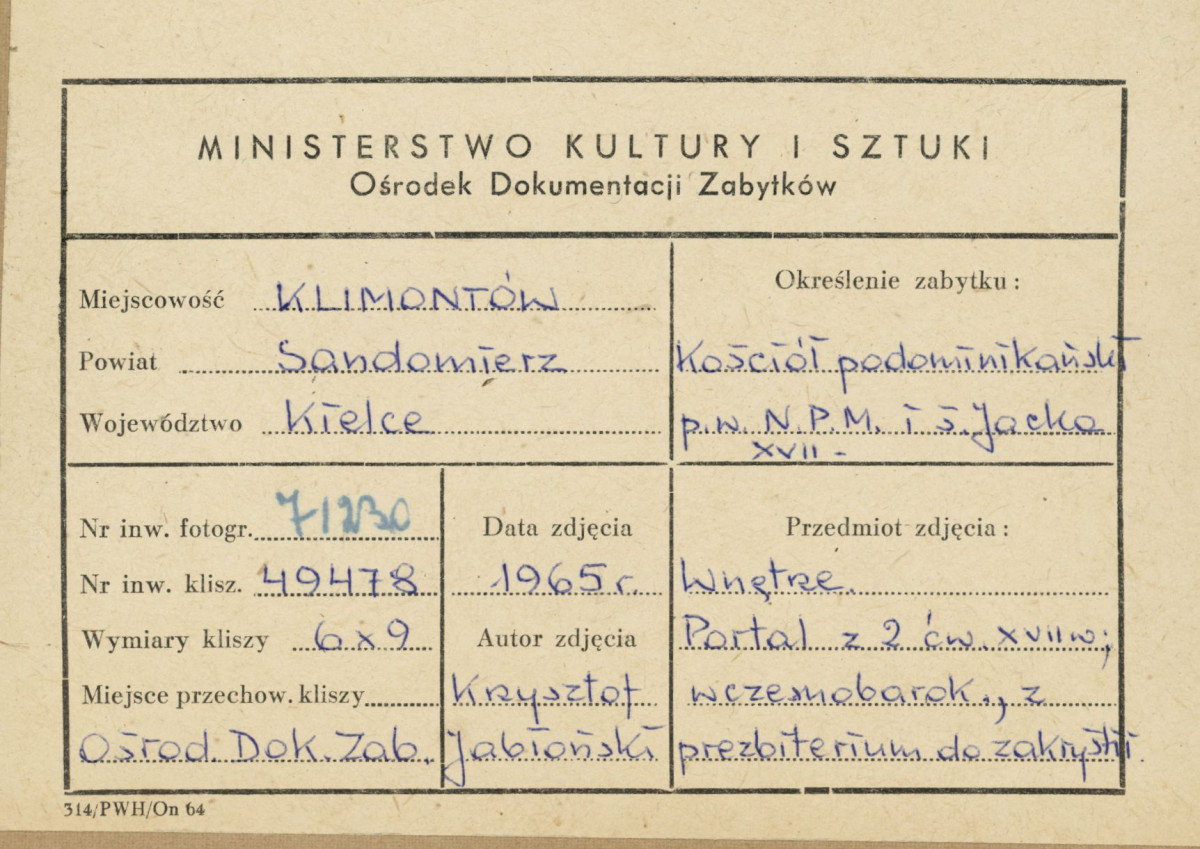 MINISTERSTWO KULTURY I SZTUKI
Ośrodek Dokumentacji Zabytków
Miejscowość KLIMONTÓW
Powiat Sandomierz
Województwo Kielce
Określenie zabytku:
Kościół podominikański
p.w. N.P.M. i ś. Jacka
XVII -
Nr inw. fotogr. 71230
Nr inw. klisz. 49478
Wymiary kliszy 6 x 9
Miejsce przechow. kliszy
Ośrod. Dok. Zab.
Data zdjęcia
1965 r.
Autor zdjęcia
Krzysztof
Jabłoński
Przedmiot zdjęcia:
Wnętrze.
Portal z 2 ćw. XVII w;
wczesnobarok., z
prezbiterium do zakrystii.
314/PWH/On 64